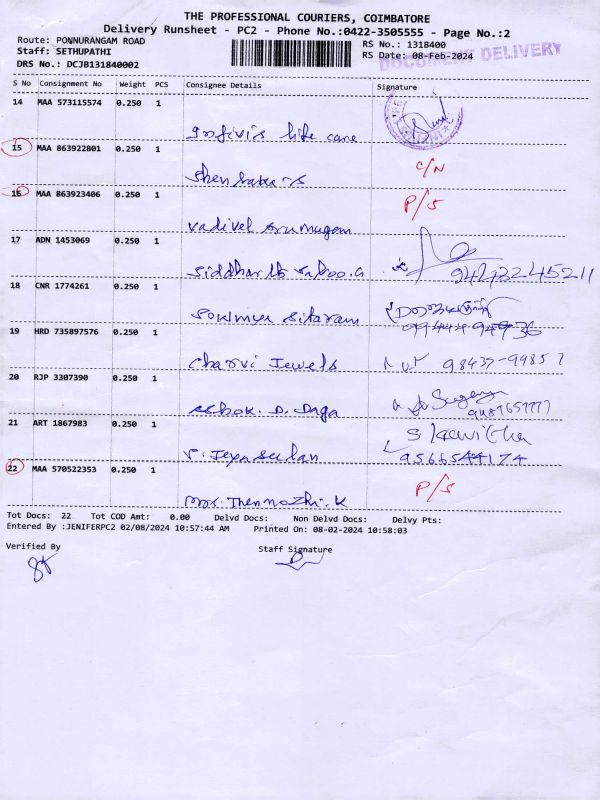 THE PROFESSIONAL COURIERS, COIMBATORE
Delivery Runsheet - PC2 - Phone No.:0422-3505555 - Page No.:2
Route: PONNURANGAM ROAD
Staff: SETHUPATHI
DRS No.: DCJB131840002
RS No.: 1318400
RS Date: 08-Feb-2024
DOCUMENT DELIVERY
S No Consignment No Weight PCS Consignee Details Signature
14 MAA 573115574 0.250 1
life care
15 MAA 863922801 0.250 1 C/N
16 MAA 863923406 0.250 1 P/S
Vadivel Arumugam
17 ADN 1453069 0.250 1
Siddharth
18 CNR 1774261 0.250 1
Sowmya Sitaram
19 HRD 735897576 0.250 1
Charvi Jewels
20 RJP 3307390 0.250 1
Ashok. D. Daga
21 ART 1867983 0.250 1
V. Jeyaseelan 9566544174
22 MAA 570522353 0.250 1 P/S
Mrs. Thenmozhi. K
Tot Docs: 22 Tot COD Amt: 0.00 Delvd Docs: Non Delvd Docs: Delvy Pts:
Entered By :JENIFERPC2 02/08/2024 10:57:44 AM Printed On: 08-02-2024 10:58:03
Verified By Staff Signature